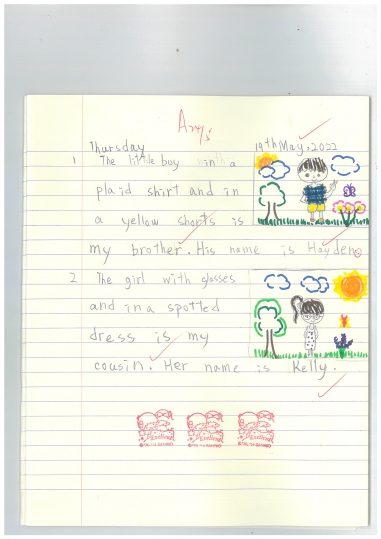 Thursday 19th May, 2022
1 The little boy with a
plaid shirt and in
a yellow shorts is
my brother. His name is Hayden.
2 The girl with glasses
and in a spotted
dress is my
cousin. Her name is Kelly.
Excellent Excellent Excellent